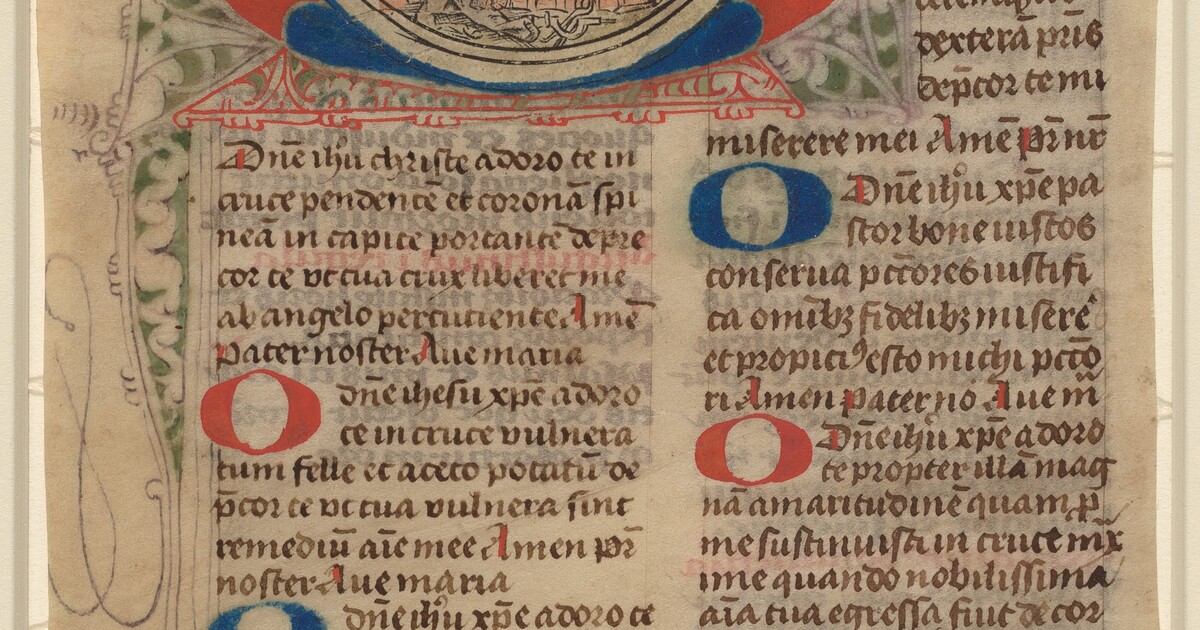 Dn̄e ih̄u christe adoro te in
cruce pendentē et coronā spi
neā in capite portantē depre
cor te vt tua crux liberet me
ab angelo percutiente Amē
Pater noster Aue maria
O dn̄e ihesu xp̄e adoro
te in cruce vulnera
tum felle et aceto potatū de
p̄cor te vt tua vulnera sint
remediū aīe mee Amen pr̄
noster Aue maria
O dn̄e ih̄u xp̄e adoro te
dexterā pr̄is
dep̄cor te mi
miserere mei Amē Pr̄ nr̄
O Dn̄e ih̄u xp̄e pa
stor bone iustos
conserua pctōres iustifi
ca omībꝫ fidelibꝫ miserē
et propiciꝰ esto michi pctō
ri Amen Pater nō Aue m̄
O Dn̄e ih̄u xp̄e adoro
te propter illā mag
nā amaritudinē quam p̄
me sustinuisti in cruce mx̄
ime quando nobilissima
aīa tua egressa fuit de cor